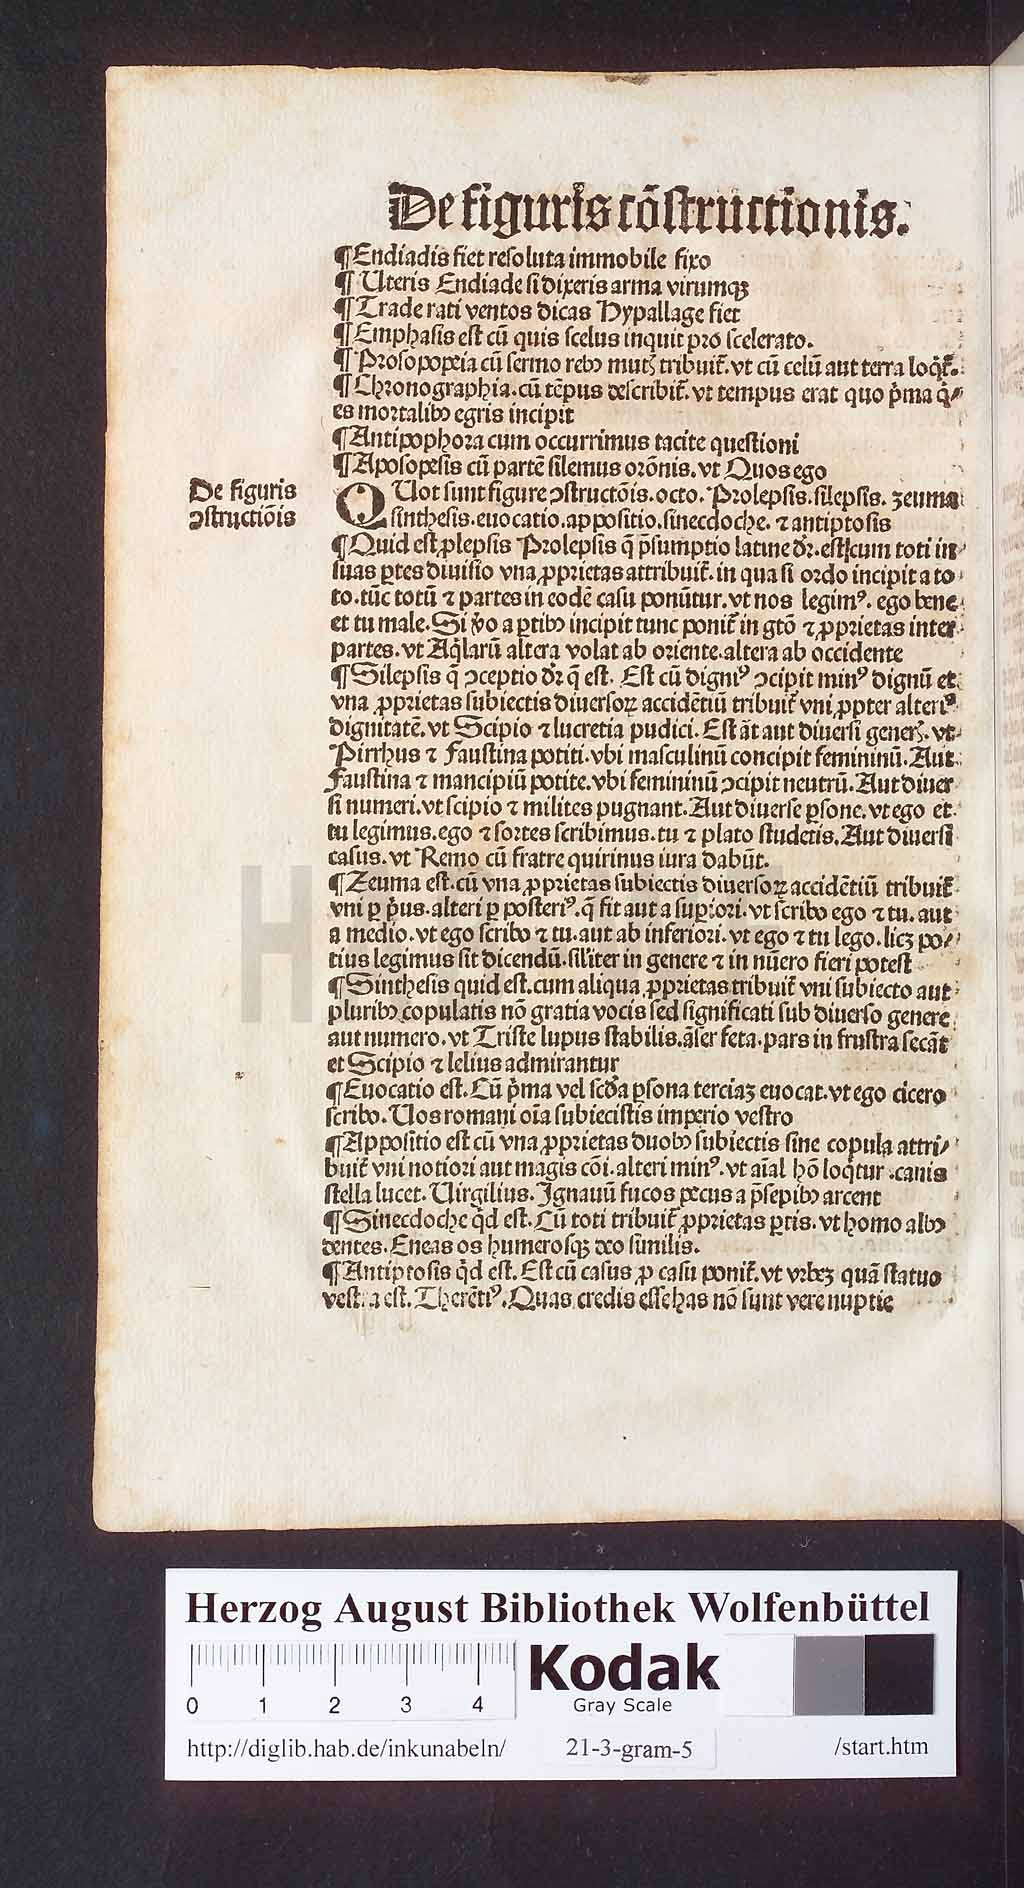 De figuris cōstructionis.
¶Endiadis fiet resoluta immobile fixo
¶Uteris Endiade si dixeris arma virumqꝫ
¶Trade rati ventos dicas Hypallage fiet
¶Emphasis est cū quis scelus inquit pro scelerato.
¶Prosopopeia cū sermo rebꝰ mutꝭ tribuit᷑. vt cū celū aut terra loq̄t᷑.
¶Chronographia. cū tēpus describit᷑. vt tempus erat quo p̄ma q̇/
es mortalibꝰ egris incipit
¶Antipophora cum occurrimus tacite questioni
¶Aposopesis cū partē silemus orōnis. vt Quos ego
De figuris
ꝯstructiōis
QUot sunt figure ꝯstructōis. octo. Prolepsis. silepsis. zeuma
sinthesis. euocatio. appositio. sinecdoche. ⁊ antiptosis
¶Quid est ꝓlepsis Prolepsis q̄ p̄sumptio latine dr̄. est cum toti in
suas ꝑtes diuisio vna ꝓprietas attribuit᷑. in qua si ordo incipit a to
to. tūc totū ⁊ partes in eodē casu ponūtur. vt nos legimꝰ. ego bene
et tu male. Si v̊o a ꝑtibꝰ incipit tunc ponit᷑ in gtō ⁊ ꝓprietas inter
partes. vt Aq̇larū altera volat ab oriente. altera ab occidente
¶Silepsis q̄ ꝯceptio dr̄ q̇ est. Est cū digniꝰ ꝯcipit minꝰ dignū et
vna ꝓprietas subiectis diuersoꝝ accidētiū tribuit᷑ vni ꝓpter alteriꝰ
dignitatē. vt Scipio ⁊ lucretia pudici. Est āt aut diuersi generꝭ. vt
Pirrhus ⁊ Faustina potiti. vbi masculinū concipit femininū. Aut
Faustina ⁊ mancipiū potite. vbi femininū ꝯcipit neutrū. Aut diuer
si numeri. vt scipio ⁊ milites pugnant. Aut diuerse ꝑsone. vt ego et
tu legimus. ego ⁊ sortes scribimus. tu ⁊ plato studetis. Aut diuersi
casus. vt Remo cū fratre quirinus iura dabūt.
¶Zeuma est. cū vna ꝓprietas subiectis diuersoꝝ accidētiū tribuit᷑
vni ꝑ p̄us. alteri ꝑ posteriꝰ. q̄ fit aut a superiori. vt scribo ego ⁊ tu. aut
a medio. vt ego scribo ⁊ tu. aut ab inferiori. vt ego ⁊ tu lego. licꝫ po/
tius legimus sit dicendū. siliter in genere ⁊ in nūero fieri potest
¶Sinthesis quid est. cum aliqua ꝓprietas tribuit᷑ vni subiecto aut
pluribꝰ copulatis nō gratia vocis sed significati sub diuerso genere
aut numero. vt Triste lupus stabilis. āser feta. pars in frustra secāt
et Scipio ⁊ lelius admirantur
¶Euocatio est. Cū p̄ma vel scd̄a ꝑsona terciaꝫ euocat. vt ego cicero
scribo. Uos romani oīa subiecistis imperio vestro
¶Appositio est cū vna ꝓprietas duobꝰ subiectis sine copula attri/
buit᷑ vni notiori aut magis cōi. alteri minꝰ. vt aīal hō loq̇tur. canis
stella lucet. Uirgilius. Ignauū fucos pecus a p̄sepibꝰ arcent
¶Sinecdoche q̇d est. Cū toti tribuit᷑ ꝓprietas ꝑtis. vt homo albꝰ
dentes. Eneas os humerosqꝫ deo similis.
¶Antiptosis q̇d est. Est cū casus ꝓ casu ponit᷑. vt vrbeꝫ quā statuo
vestra est. Therētiꝰ. Quas credis esse has nō sunt vere nuptie
HAB
Herzog August Bibliothek Wolfenbüttel
0 1 2 3 4
Kodak
Gray Scale
http://diglib.hab.de/inkunabeln/ 21-3-gram-5 /start.htm